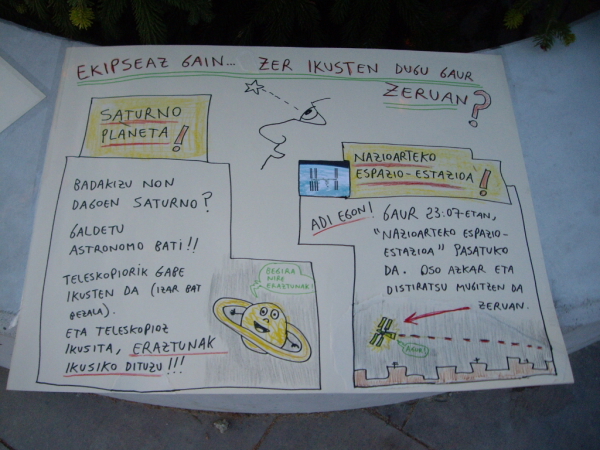 EKIPSEAZ GAIN... ZER IKUSTEN DUGU GAUR
ZERUAN?
SATURNO
PLANETA!
BADAKIZU NON
DAGOEN SATURNO?
GALDETU
ASTRONOMO BATI!!
TELESKOPIORIK GABE
IKUSTEN DA (IZAR BAT
BEZALA).
ETA TELESKOPIOZ
IKUSITA, ERAZTUNAK
IKUSIKO DITUZU!!!
BEGIRA
NIRE
ERAZTUNAK!
NAZIOARTEKO
ESPAZIO-ESTAZIOA!
ADI EGON! GAUR 23:07-ETAN,
"NAZIOARTEKO ESPAZIO-
ESTAZIOA" PASATUKO
DA. OSO AZKAR ETA
DISTIRATSU MUGITZEN DA
ZERUAN.